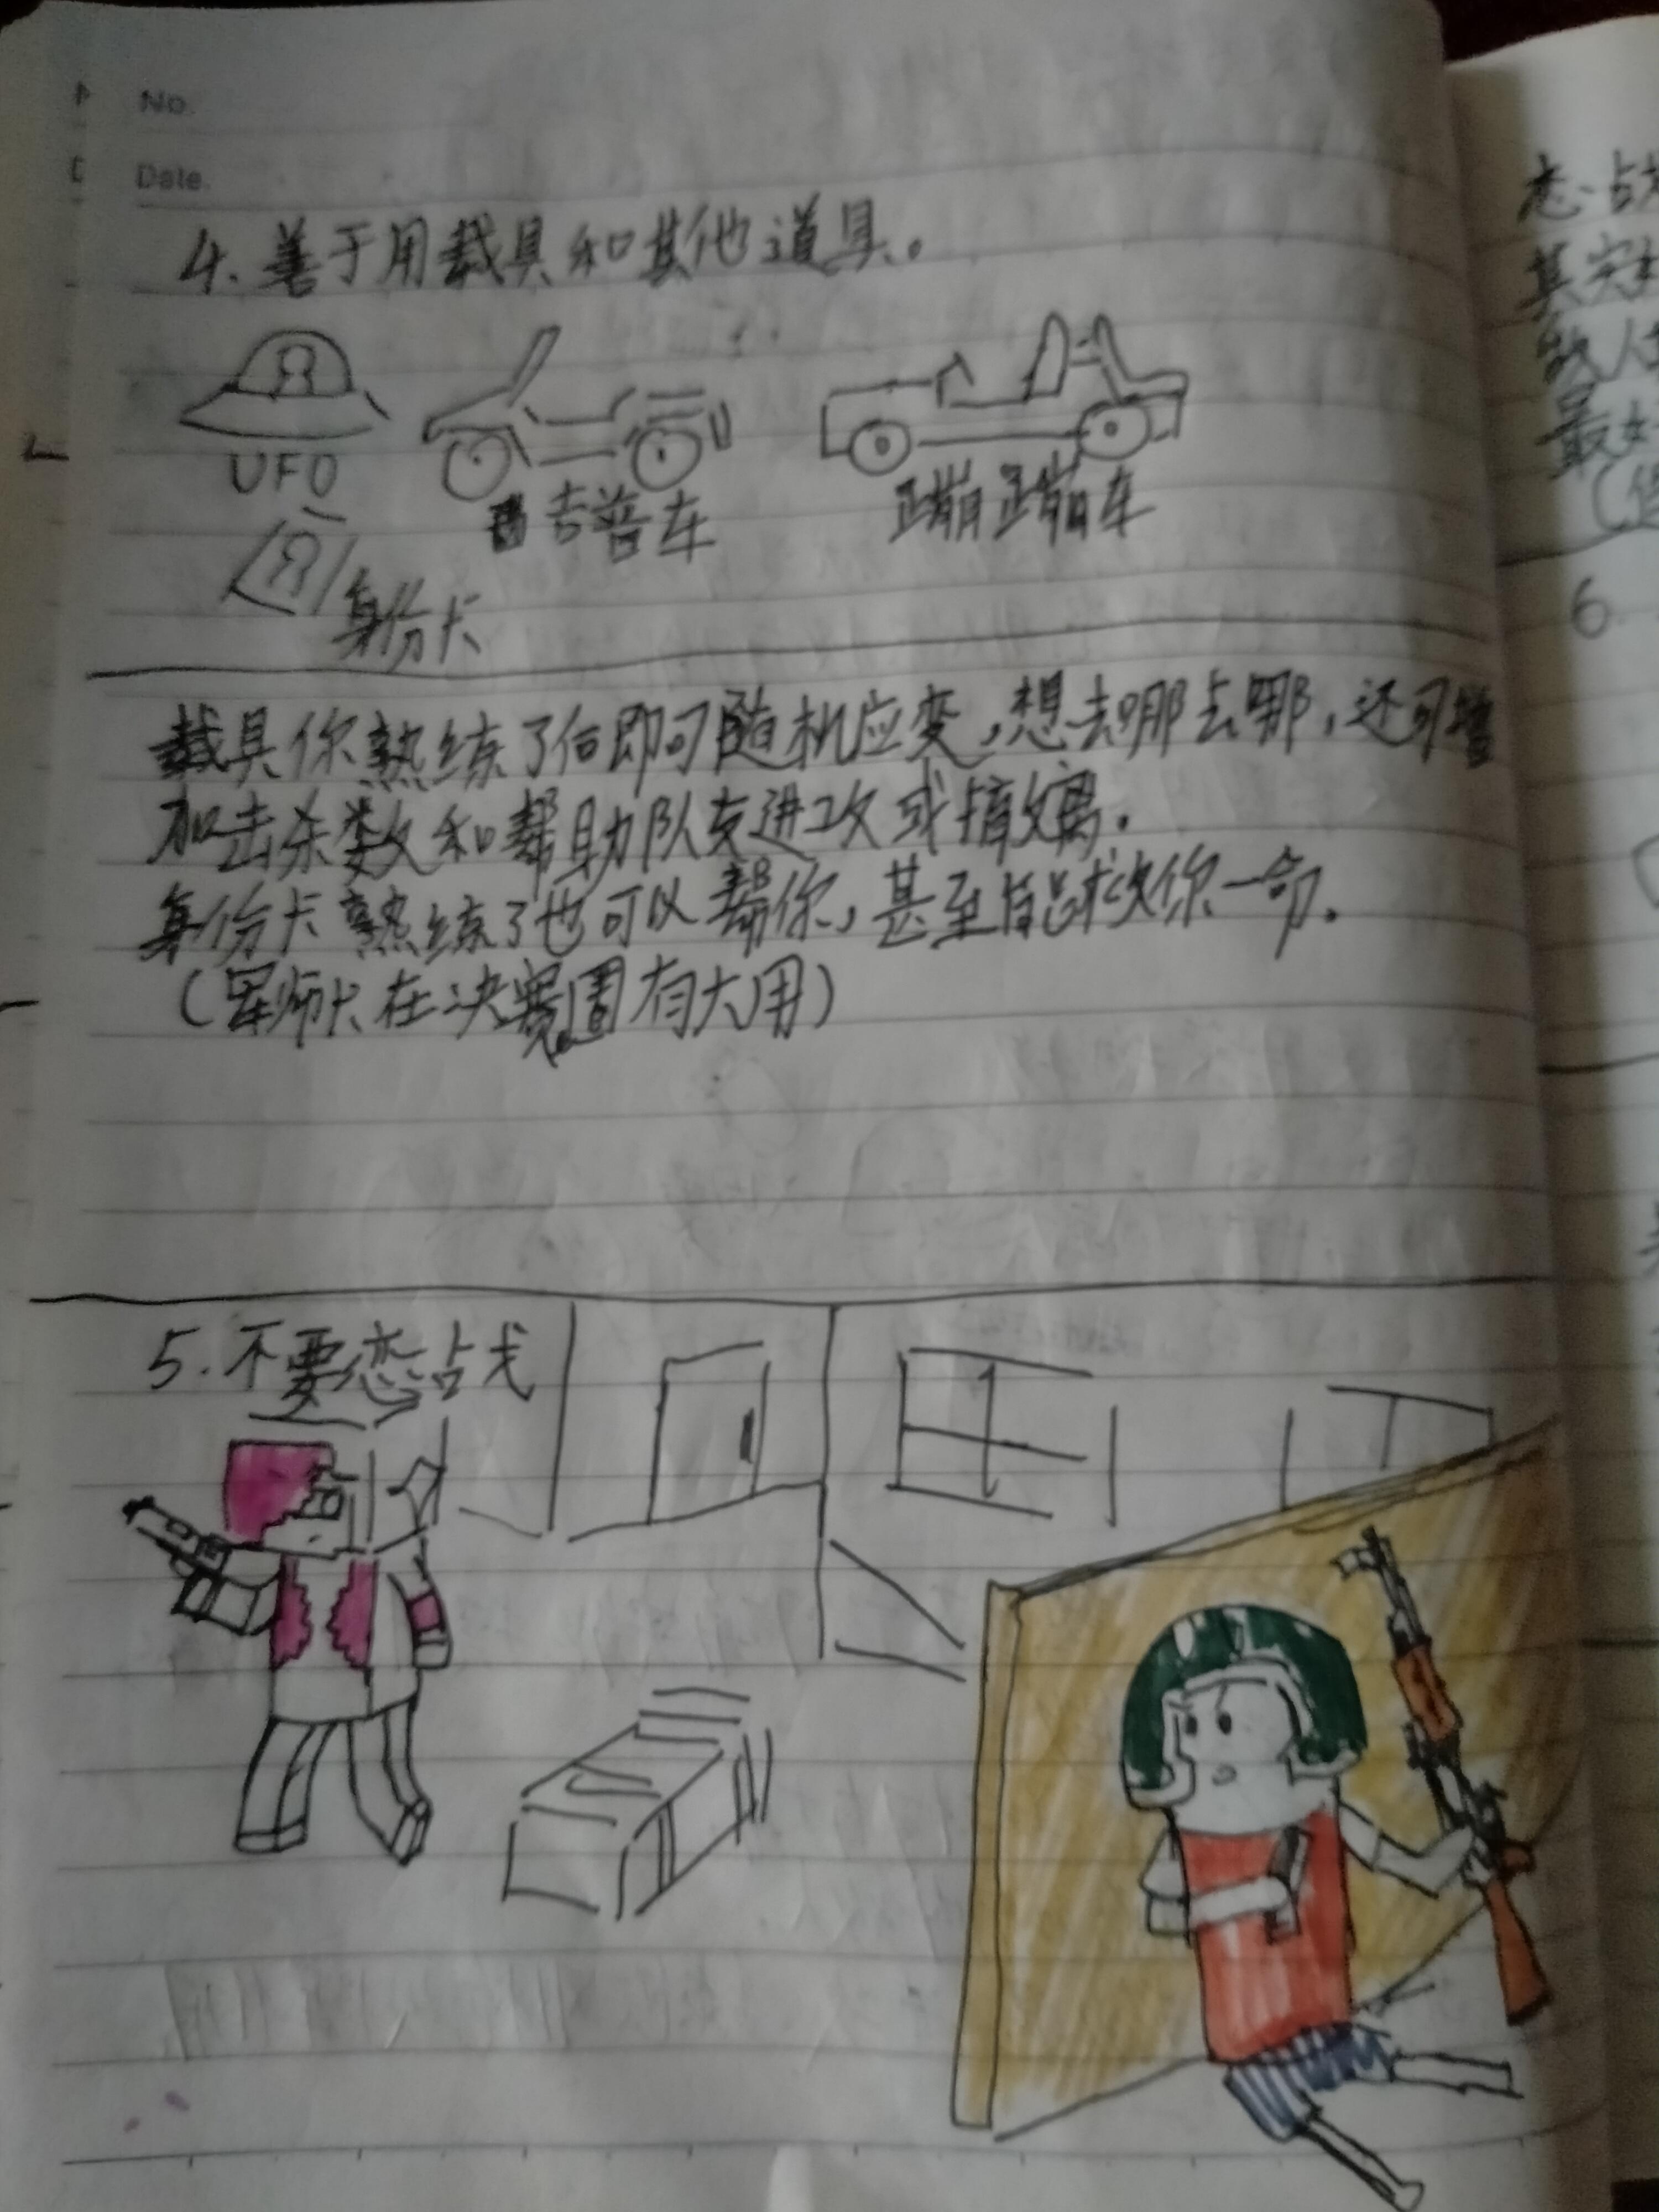 No.
Date.
4. 善于用载具和其他道具。
UFO
吉普车
蹦蹦车
身份卡
载具你熟练了后即可随机应变，想去哪去哪，还可增
加击杀数和帮助队友进攻或撤离。
身份卡熟练了也可以帮你，甚至能救你一命。
（军师卡在决赛圈有大用）
5. 不要恋战
恋战
其实
敌人
最好
6.